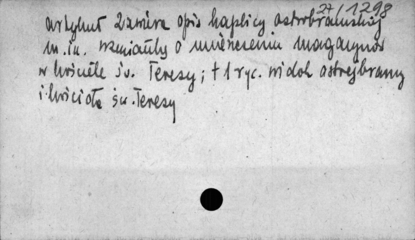 27/1298
artykuł zawiera opis kaplicy ostrobramskiej
m.in. wzmianki o umieszczeniu magazynów
w kościele św. Teresy; + 1 ryc. widok ostrejbramy
i kościoła św. Teresy